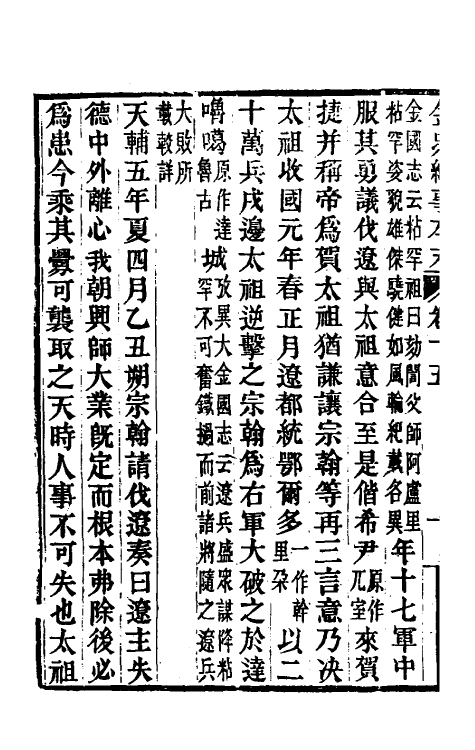 金國志云粘罕祖曰劾閭父師阿盧里
粘罕姿貌雄傑驍健如風輪紀載各異
年十七軍中
服其勇議伐遼與太祖意合至是偕希尹原作兀室來賀
捷并稱帝為賀太祖猶謙讓宗翰等再三言意乃決
太祖收國元年春正月遼都統鄂爾多一作幹里朵以二
十萬兵戍邊太祖逆擊之宗翰為右軍大破之於達
嚕噶原作達魯古城攷異大金國志云遼兵盛眾謀降粘罕不可奮鐵撾而前諸將隨之遼兵
大敗所載較詳
天輔五年夏四月乙丑朔宗翰請伐遼奏曰遼主失
德中外離心我朝興師大業既定而根本弗除後必
為患今乘其釁可襲取之天時人事不可失也太祖